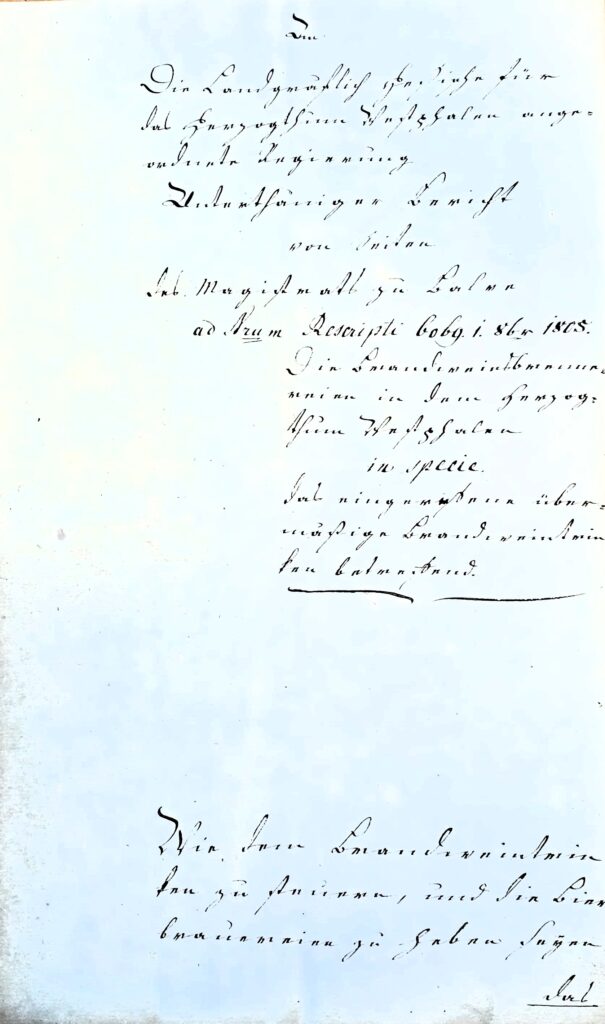 An
Die Landgräflich Hessische für
das Herzogthum Westphalen ange-
ordnete Regierung
Unterthäniger Bericht
von Seiten
des Magistrats zu Balve
ad Nrum Rescripti 6069. 1. 8br 1805.
Die Brandweinsbrenne-
reien in dem Herzog-
thum Westphalen
in specie.
das eingerissene über-
mäßige Brandweintrin
ken betreffend.
Wie dem Brandweintrin
ken zu steuern, und die Bier
brauereien zu heben seyen
das